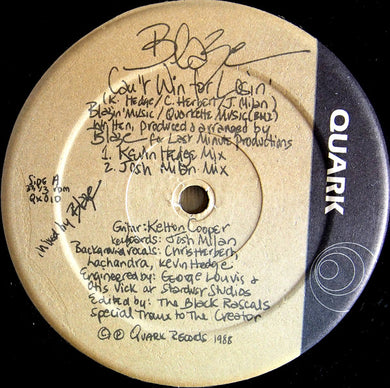 Blaze
Can't Win for Losin'
(K. Hedge / C. Herbert / J. Milan)
Blazin' Music / Quarkette Music (BMI)
Written, produced & arranged by
Blaze for Last Minute Productions
1. Kevin Hedge Mix
2. Josh Milan Mix
Side A
33 1/3 rpm
QK 010
mixed by Blaze
QUARK
Guitar: Kelton Cooper
Keyboards: Josh Milan
Background vocals: Chris Herbert,
Lachandra, Kevin Hedge
Engineered by: George Louvis &
Otis Vick at Stardust Studios
Edited by: The Black Rascals
Special Thanx to The Creator
© ℗ Quark Records 1988